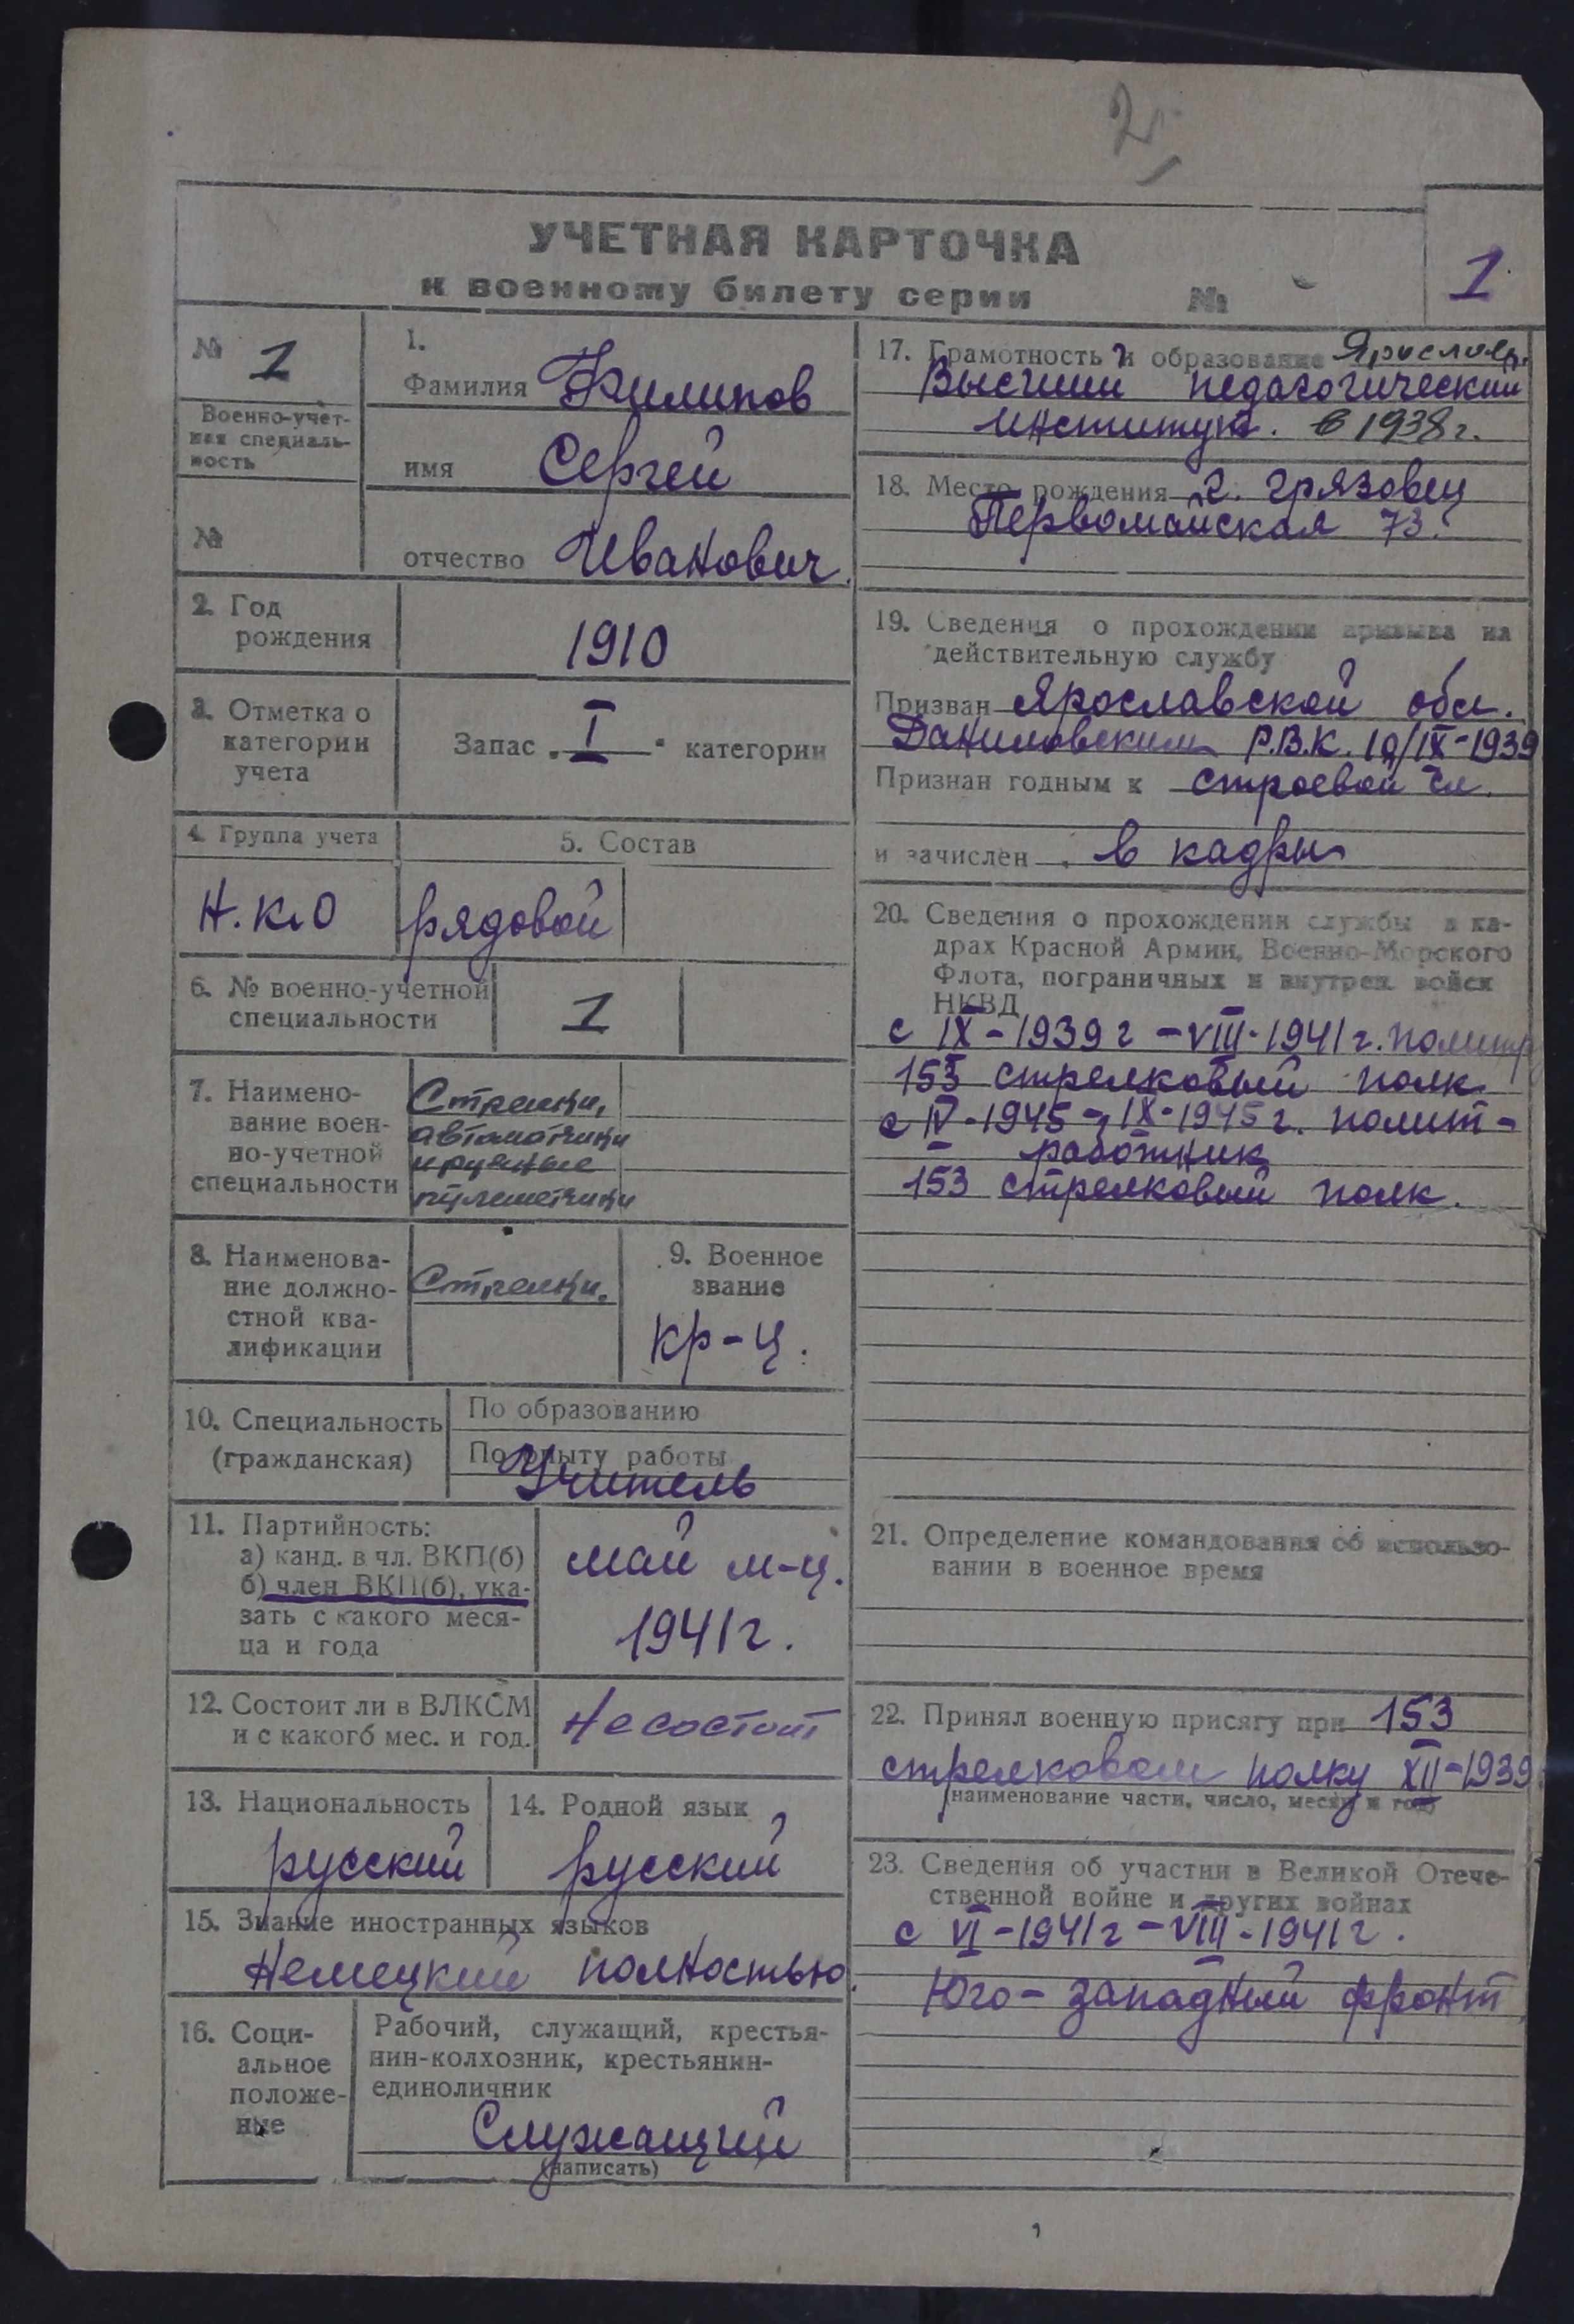 2
УЧЕТНАЯ КАРТОЧКА
к военному билету серии №
1
№ 1
Военно-учет-
ная специаль-
ность
№
1.
Фамилия Филипов
имя Сергей
отчество Иванович.
2. Год
рождения
1910
3. Отметка о
категории
учета
Запас „I“ категории
4. Группа учета
Н.К.О
5. Состав
рядовой
6. № военно-учетной
специальности
1
7. Наимено-
вание воен-
но-учетной
специальности
Стрелки,
автоматчики
и ручные
пулеметчики
8. Наименова-
ние должно-
стной ква-
лификации
Стрелки.
9. Военное
звание
кр-ц.
10. Специальность
(гражданская)
По образованию
По опыту работы
Учитель
11. Партийность:
а) канд. в чл. ВКП(б)
б) член ВКП(б), ука-
зать с какого меся-
ца и года
май м-ц.
1941 г.
12. Состоит ли в ВЛКСМ
и с какого мес. и год.
Не состоит
13. Национальность
русский
14. Родной язык
русский
15. Знание иностранных языков
Немецкий полностью.
16. Соци-
альное
положе-
ние
Рабочий, служащий, крестья-
нин-колхозник, крестьянин-
единоличник
Служащий
(написать)
17. Грамотность и образование Ярославс.
Высший педагогический
институт. в 1938 г.
18. Место рождения г. Грязовец
Первомайская 73.
19. Сведения о прохождении призыва на
действительную службу
Призван Ярославской обл.
Даниловским Р.В.К. 10/IX-1939
Признан годным к строевой сл.
и зачислен в кадры
20. Сведения о прохождении службы в ка-
драх Красной Армии, Военно-Морского
Флота, пограничных и внутрен. войск
НКВД
с IX-1939 г - VIII-1941 г. политр
153 стрелковый полк
с IV-1945 - IX-1945 г. полит-
работник
153 стрелковый полк.
21. Определение командования об использо-
вании в военное время
22. Принял военную присягу при 153
стрелковом полку XII-1939
(наименование части, число, месяц и год)
23. Сведения об участии в Великой Отече-
ственной войне и других войнах
с VI-1941 г - VIII-1941 г.
Юго-западный фронт